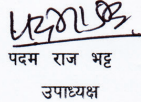 पदम राज भट्ट
उपाध्यक्ष